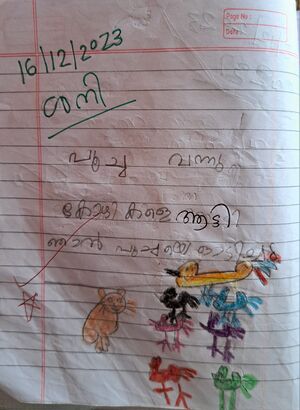 Page No :
Date :
16/12/2023
ശനി
പൂച്ച വന്നു
കോഴികളെ ആട്ടി
ഞാൻ പൂച്ചയെ ഓടിച്ചു